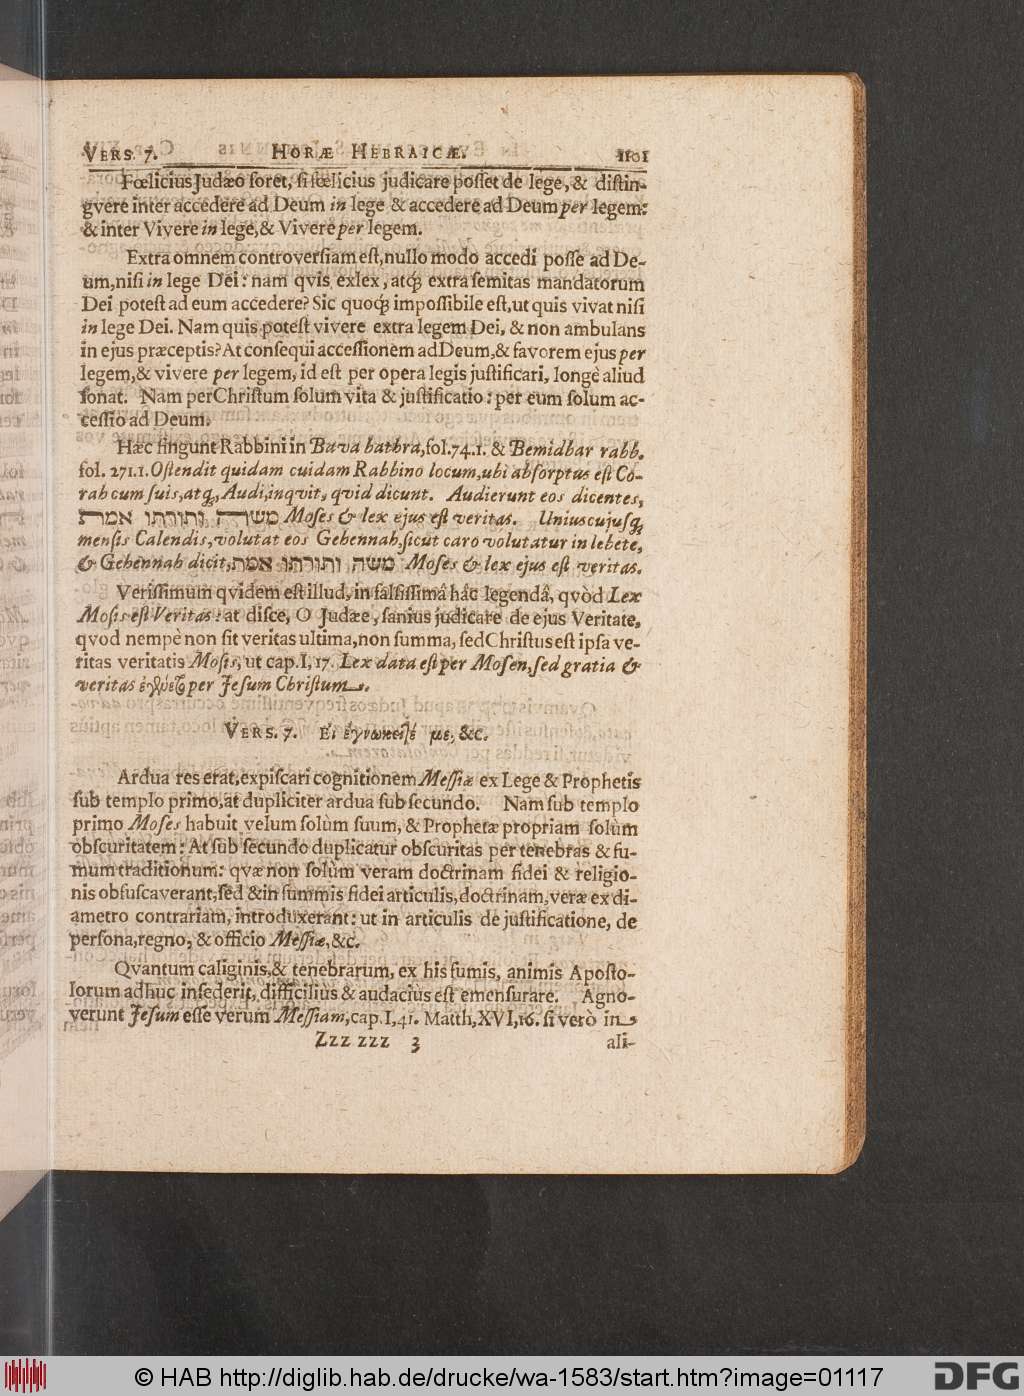 VERS. 7. HORÆ HEBRAICÆ. 1101
Fœlicius Judæo foret, si fœlicius judicare posset de lege, & distin-
gvere inter accedere ad Deum in lege & accedere ad Deum per legem:
& inter Vivere in lege, & Vivere per legem.
Extra omnem controversiam est, nullo modo accedi posse ad De-
um, nisi in lege Dei: nam qvis exlex, atq; extra semitas mandatorum
Dei potest ad eum accedere? Sic quoq; impossibile est, ut quis vivat nisi
in lege Dei. Nam quis potest vivere extra legem Dei, & non ambulans
in ejus præceptis? At consequi accessionem ad Deum, & favorem ejus per
legem, & vivere per legem, id est per opera legis justificari, longè aliud
sonat. Nam per Christum solum vita & justificatio: per eum solum ac-
cessio ad Deum.
Hæc fingunt Rabbini in Bava bathra, fol. 74. 1. & Bemidbar rabb.
fol. 271.1. Ostendit quidam cuidam Rabbino locum, ubi absorptus est Co-
rah cum suis, atq;, Audi, inqvit, qvid dicunt. Audierunt eos dicentes,
משה ותורתו אמת Moses & lex ejus est veritas. Uniuscujusq;
mensis Calendis, volutat eos Gehennah, sicut caro volutatur in lebete,
& Gehennah dicit, משה ותורתו אמת Moses & lex ejus est veritas.
Verissimum qvidem est illud, in falsissimâ hâc legendâ, qvòd Lex
Mosis est Veritas: at disce, O Judæe, sanius judicare de ejus Veritate,
qvod nempè non sit veritas ultima, non summa, sed Christus est ipsa ve-
ritas veritatis Mosis, ut cap. I, 17. Lex data est per Mosen, sed gratia &
veritas ἐγένετο per Jesum Christum.
VERS. 7. Εἰ ἐγνώκειτέ με, &c.
Ardua res erat, expiscari cognitionem Messiæ ex Lege & Prophetis
sub templo primo, at dupliciter ardua sub secundo. Nam sub templo
primo Moses habuit velum solùm suum, & Prophetæ propriam solùm
obscuritatem: At sub secundo duplicatur obscuritas per tenebras & fu-
mum traditionum: qvæ non solùm veram doctrinam fidei & religio-
nis obfuscaverant, sed & in summis fidei articulis, doctrinam, veræ ex di-
ametro contrariam, introduxerant: ut in articulis de justificatione, de
persona, regno, & officio Messiæ, &c.
Qvantum caliginis, & tenebrarum, ex his fumis, animis Aposto-
lorum adhuc insederit, difficilius & audacius est emensurare. Agno-
verunt Jesum esse verum Messiam, cap. I, 41. Matth, XVI, 16. si verò in
Zzz zzz 3 ali-
© HAB http://diglib.hab.de/drucke/wa-1583/start.htm?image=01117
DFG